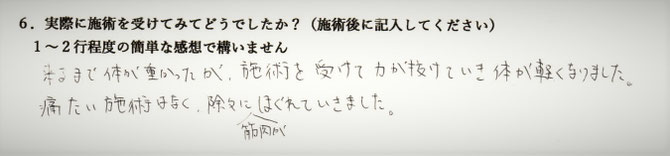 ６．実際に施術を受けてみてどうでしたか？（施術後に記入してください）
１〜２行程度の簡単な感想で構いません
来るまで体が重かったが、施術を受けて力が抜けていき体が軽くなりました。
痛たい施術はなく、除々にほぐれていきました。
筋肉が